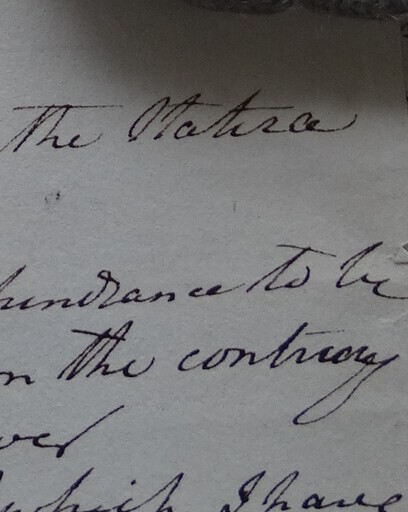 the Statice
hundrance to be
n the contrary
ver
which I have